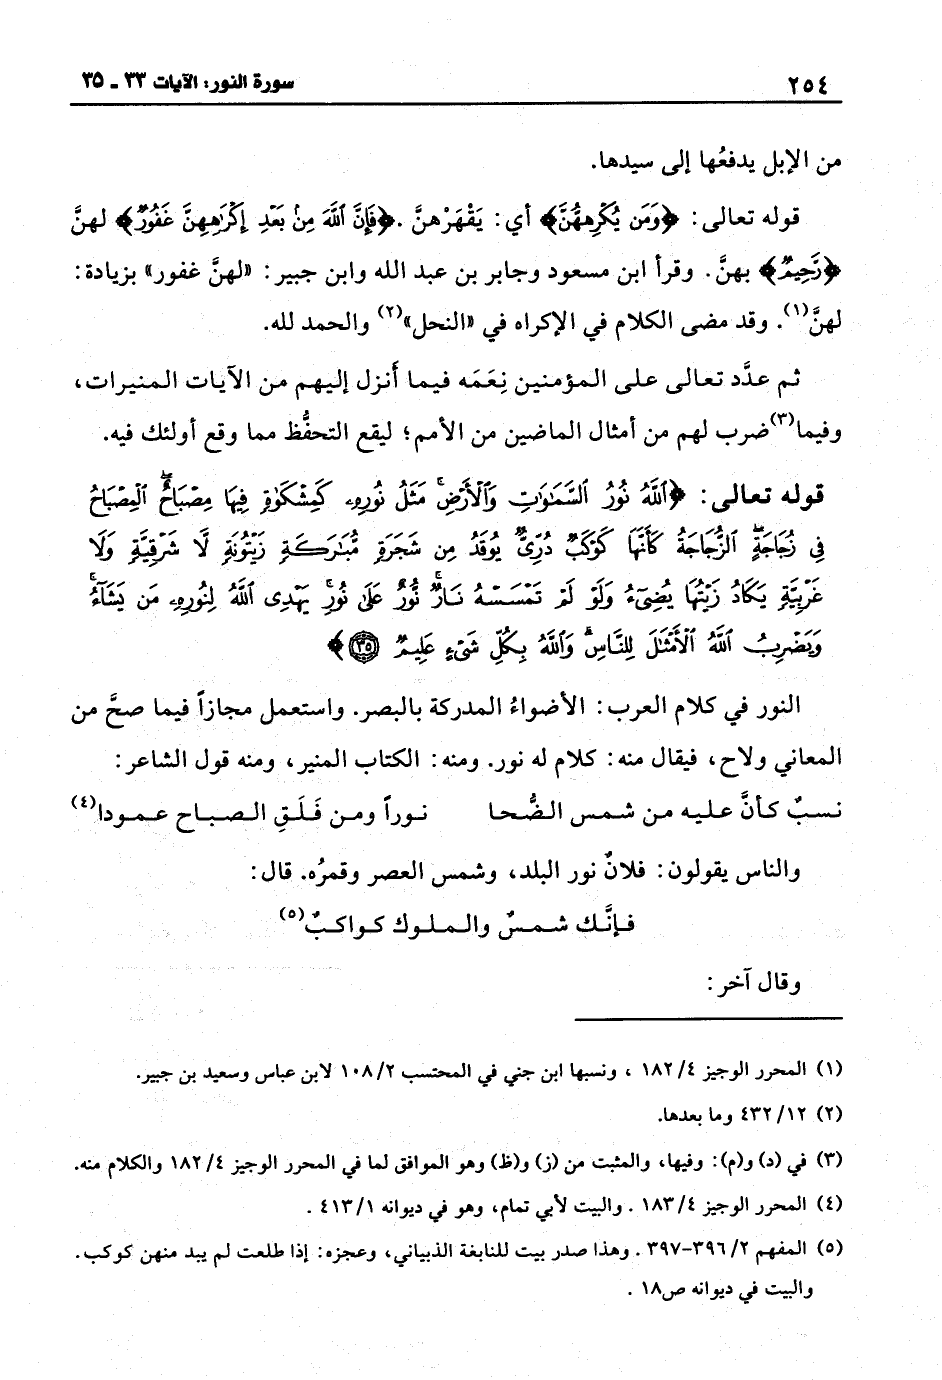 ٢٥٤ سورة النور: الآيات ٣٣ ـ ٣٥
من الإبل يدفعُها إلى سيدها.
قوله تعالى: ﴿وَمَن يُكْرِههُّنَّ﴾ أي: يَقْهَرْهنَّ. ﴿فَإِنَّ اللَّهَ مِنْ بَعْدِ إِكْرَاهِهِنَّ غَفُورٌ﴾ لهنَّ
﴿رَّحِيمٌ﴾ بهنَّ. وقرأ ابن مسعود وجابر بن عبد الله وابن جبير: «لهنَّ غفور» بزيادة:
لهنَّ(١). وقد مضى الكلام في الإكراه في «النحل»(٢) والحمد لله.
ثم عدَّد تعالى على المؤمنين نِعَمَه فيما أَنزل إليهم من الآيات المنيرات،
وفيما(٣) ضرب لهم من أمثال الماضين من الأمم؛ ليقع التحفُّظ مما وقع أولئك فيه.
قوله تعالى: ﴿اللَّهُ نُورُ السَّمَٰوَٰتِ وَالْأَرْضِ ۚ مَثَلُ نُورِهِۦ كَمِشْكَوٰةٍ فِيهَا مِصْبَاحٌ ۖ الْمِصْبَاحُ
فِي زُجَاجَةٍ ۖ الزُّجَاجَةُ كَأَنَّهَا كَوْكَبٌ دُرِّيٌّ يُوقَدُ مِن شَجَرَةٍ مُّبَٰرَكَةٍ زَيْتُونَةٍ لَّا شَرْقِيَّةٍ وَلَا
غَرْبِيَّةٍ يَكَادُ زَيْتُهَا يُضِيٓءُ وَلَوْ لَمْ تَمْسَسْهُ نَارٌ ۚ نُّورٌ عَلَىٰ نُورٍ ۗ يَهْدِي اللَّهُ لِنُورِهِۦ مَن يَشَآءُ ۚ
وَيَضْرِبُ اللَّهُ الْأَمْثَٰلَ لِلنَّاسِ ۗ وَاللَّهُ بِكُلِّ شَيْءٍ عَلِيمٌ ٣٥﴾
النور في كلام العرب: الأضواءُ المدركة بالبصر. واستعمل مجازاً فيما صحَّ من
المعاني ولاح، فيقال منه: كلام له نور. ومنه: الكتاب المنير، ومنه قول الشاعر:
نسبٌ كأنَّ عليه من شمس الضُّحا نوراً ومن فَلَقِ الصباح عمودا(٤)
والناس يقولون: فلانٌ نور البلد، وشمس العصر وقمرُه. قال:
فإنَّك شمسٌ والملوك كواكبٌ(٥)
وقال آخر:
(١) المحرر الوجيز ٤/ ١٨٢ ، ونسبها ابن جني في المحتسب ٢/ ١٠٨ لابن عباس وسعيد بن جبير.
(٢) ١٢/ ٤٣٢ وما بعدها.
(٣) في (د) و(م): وفيها، والمثبت من (ز) و(ظ) وهو الموافق لما في المحرر الوجيز ٤/ ١٨٢ والكلام منه.
(٤) المحرر الوجيز ٤/ ١٨٣ . والبيت لأبي تمام، وهو في ديوانه ١/ ٤١٣ .
(٥) المفهم ٢/ ٣٩٦-٣٩٧ . وهذا صدر بيت للنابغة الذبياني، وعجزه: إذا طلعت لم يبد منهن كوكب.
والبيت في ديوانه ص١٨ .